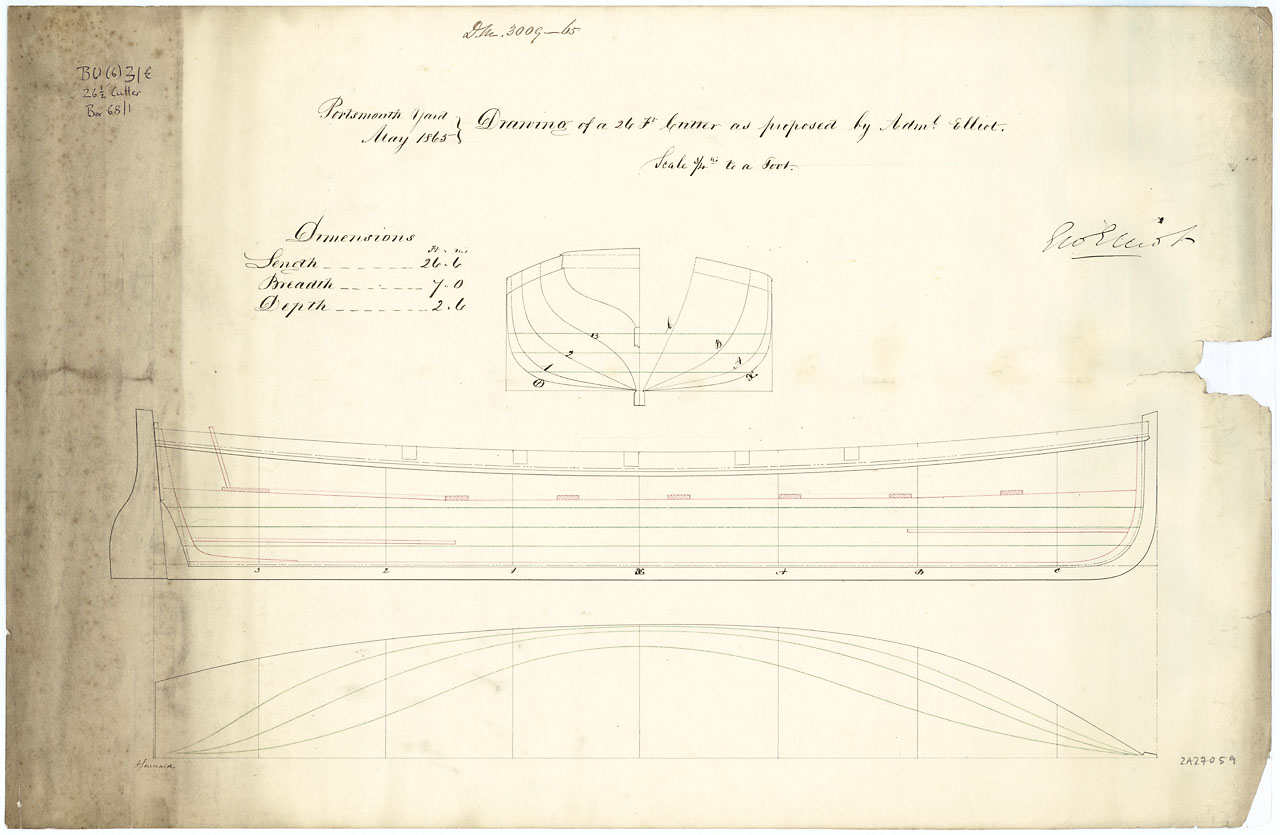 D.M. 3009—65
BU (6) 31 E
26½ Cutter
Box 68/1
Portsmouth Yard
May 1865
Drawing of a 26 Ft Cutter as proposed by Adml. Elliot.
Scale 3/4 ins to a Foot.
Dimensions
Ft. ins
Length 26.6
Breadth 7.0
Depth 2.6
Geo Elliot
3 C
2 B
1 A
3 2 1 A B C
2A27059